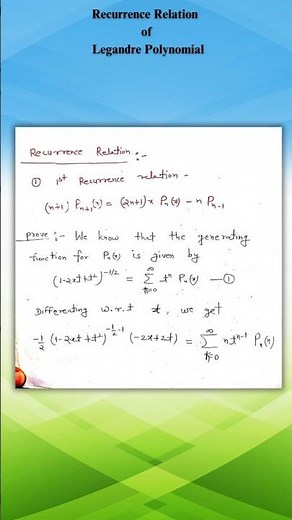 Recurrence Relation
of
Legandre Polynomial
Recurrence Relation :-
① 1st Recurrence relation -
(n+1) Pₙ₊₁(x) = (2n+1) x Pₙ(x) - n Pₙ₋₁
prove :- We know that the generating
function for Pₙ(x) is given by
(1-2xt+t²)^(-1/2) = ∑_{n=0}^{∞} tⁿ Pₙ(x) —①
Differenting w.r.t t, we get
-1/2 (1-2xt+t²)^(-1/2-1) (-2x+2t) = ∑_{n=0}^{∞} n tⁿ⁻¹ Pₙ(x)